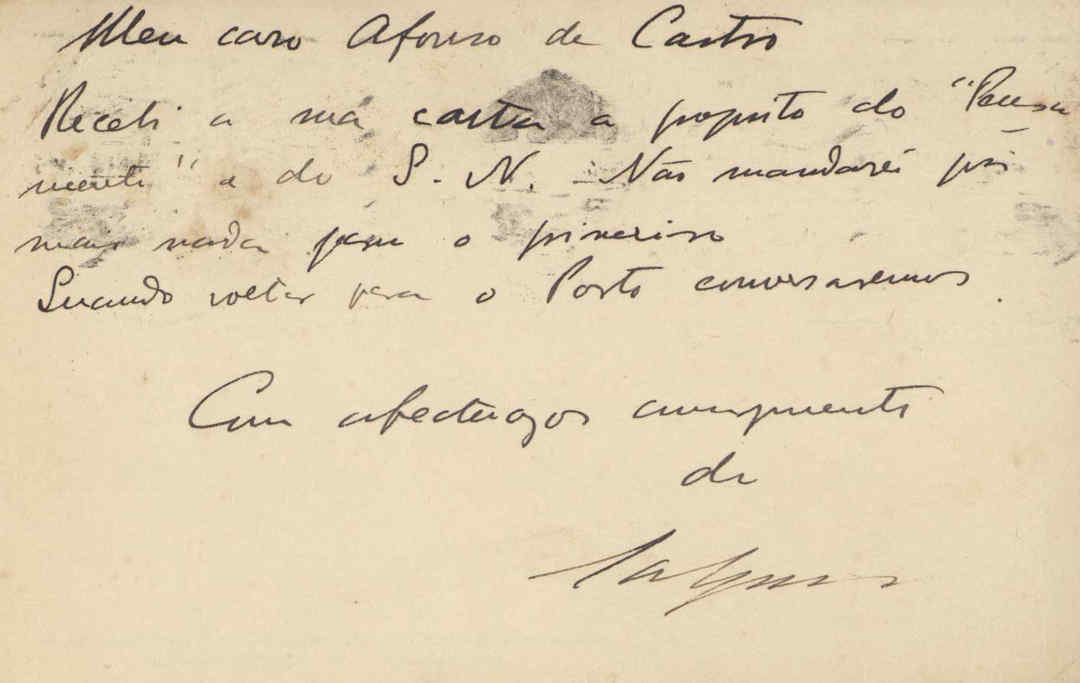 Meu caro Afonso de Castro
Recebi a sua carta a proposito do "Pensa
mento" e do S. N. Não mandarei pois
mais nada para o primeiro
Quando voltar para o Porto conversaremos.
Com afectuosos cumprimentos
de